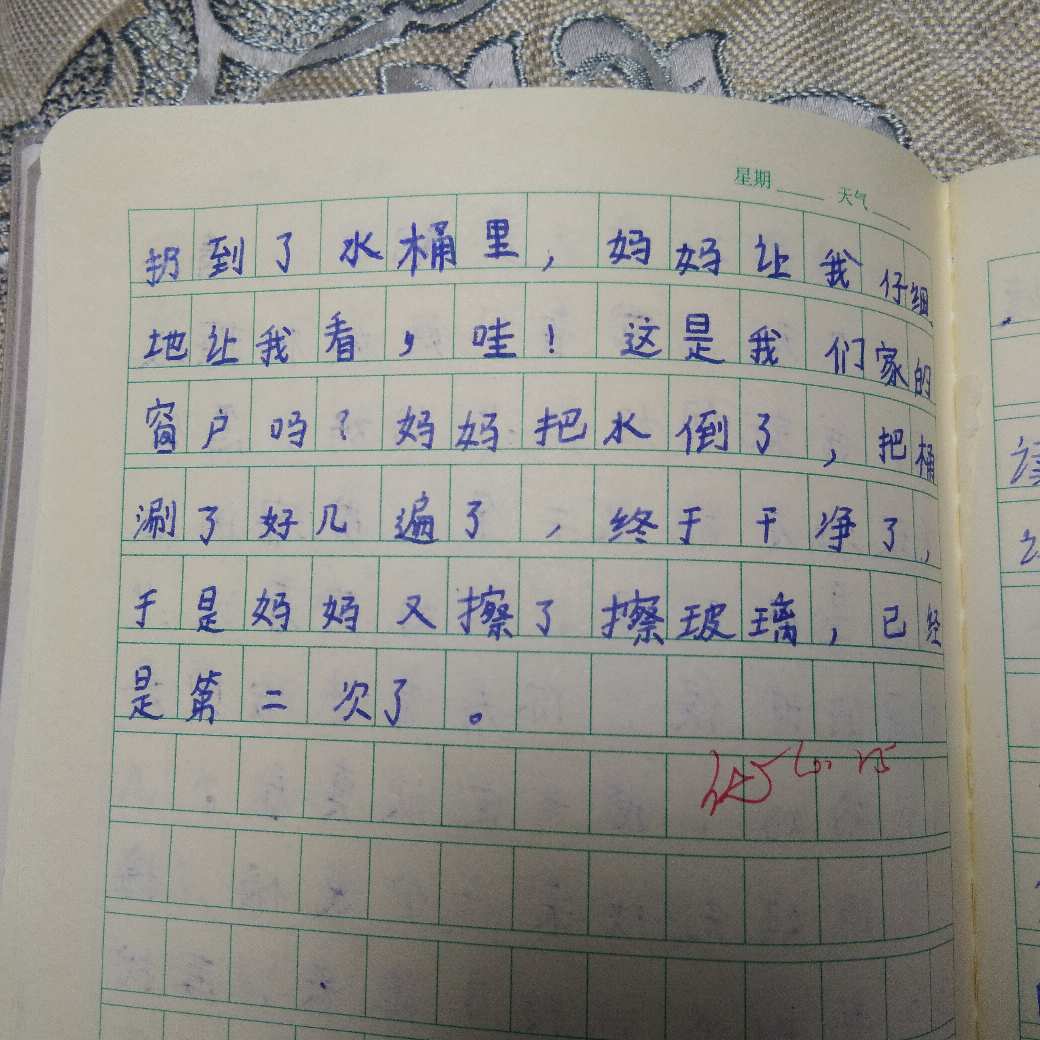 星期 天气
扔到了水桶里，妈妈让我仔细
地让我看，哇！这是我们家的
窗户吗？妈妈把水倒了，把桶
涮了好几遍了，终于干净了，
于是妈妈又擦了擦玻璃，已经
是第二次了。